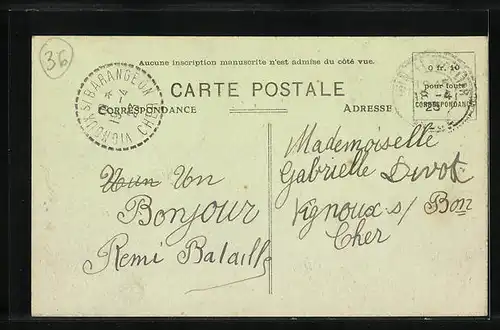 36
Aucune inscription manuscrite n'est admise du côté vue.
CARTE POSTALE
CORRESPONDANCE
ADRESSE
0 fr. 10
pour toute
CORRESPONDANCE
VIGNOUX S/BARANGEON
CHER
Un
Bonjour
Remi Bataille
Mademoiselle
Gabrielle Divot
Vignoux s/ Bon
Cher